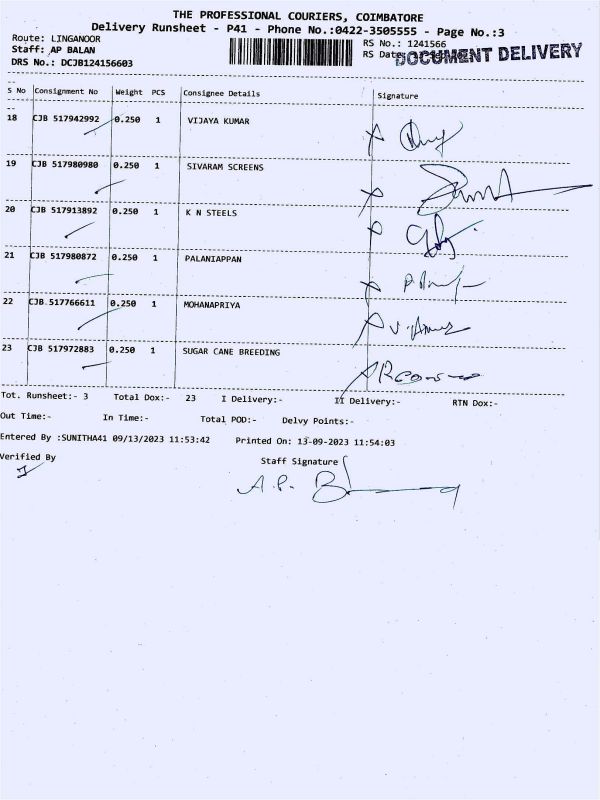 THE PROFESSIONAL COURIERS, COIMBATORE
Delivery Runsheet - P41 - Phone No.:0422-3505555 - Page No.:3
Route: LINGANOOR RS No.: 1241566
Staff: AP BALAN RS Date DOCUMENT DELIVERY
DRS No.: DCJB124156603
S No Consignment No Weight PCS Consignee Details Signature
18 CJB 517942992 0.250 1 VIJAYA KUMAR
19 CJB 517980980 0.250 1 SIVARAM SCREENS
20 CJB 517913892 0.250 1 K N STEELS
21 CJB 517980872 0.250 1 PALANIAPPAN
22 CJB 517766611 0.250 1 MOHANAPRIYA
23 CJB 517972883 0.250 1 SUGAR CANE BREEDING
Tot. Runsheet:- 3 Total Dox:- 23 I Delivery:- II Delivery:- RTN Dox:-
Out Time:- In Time:- Total POD:- Delvy Points:-
Entered By :SUNITHA41 09/13/2023 11:53:42 Printed On: 13-09-2023 11:54:03
Verified By Staff Signature
A.P. B